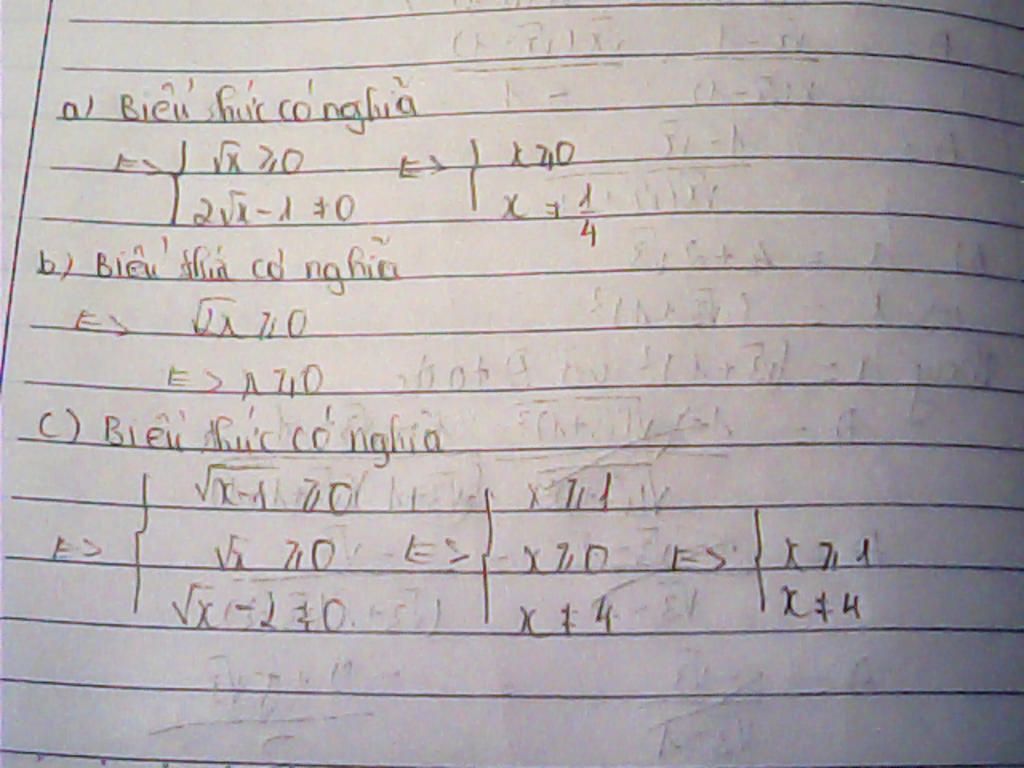 a) Biểu thức có nghĩa
<=> { √x ≥ 0 <=> { x ≥ 0
2√x - 1 ≠ 0 x ≠ 1/4
b) Biểu thức có nghĩa
<=> √2x ≥ 0
<=> x ≥ 0
c) Biểu thức có nghĩa
√x-1 ≥ 0 x ≥ 1
<=> { √x ≥ 0 <=> { x ≥ 0 <=> { x ≥ 1
√x - 2 ≠ 0 x ≠ 4 x ≠ 4